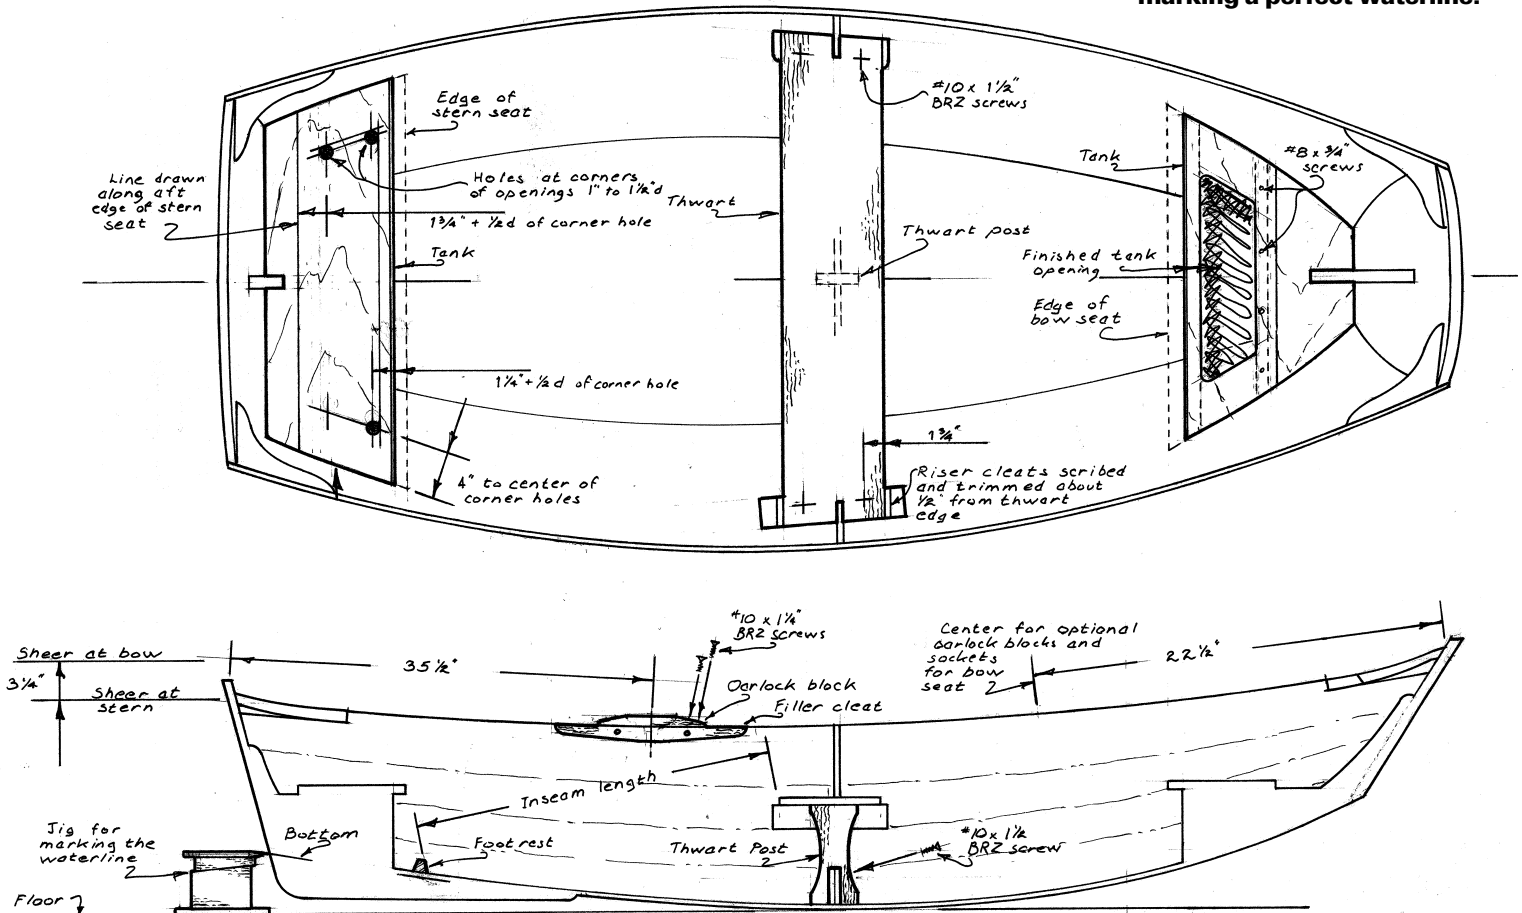 marking a perfect waterline.
Edge of
stern seat
#10 x 1½"
BRZ screws
Line drawn
along aft
edge of stern
seat
Holes at corners
of openings 1" to 1½"d
1¾" + ½d of corner hole
Tank
Thwart
Thwart post
Tank
#8 x ¾"
screws
Finished tank
opening
Edge of
bow seat
1¼" + ½d of corner hole
4" to center of
corner holes
1¾"
Riser cleats scribed
and trimmed about
½" from thwart
edge
Sheer at bow
3¼"
Sheer at
stern
35½"
#10 x 1¼"
BRZ screws
Oarlock block
Filler cleat
Center for optional
oarlock blocks and
sockets
for bow
seat
22½"
Inseam length
Jig for
marking the
waterline
Bottom
Foot rest
Thwart Post
#10 x 1½
BRZ screw
Floor